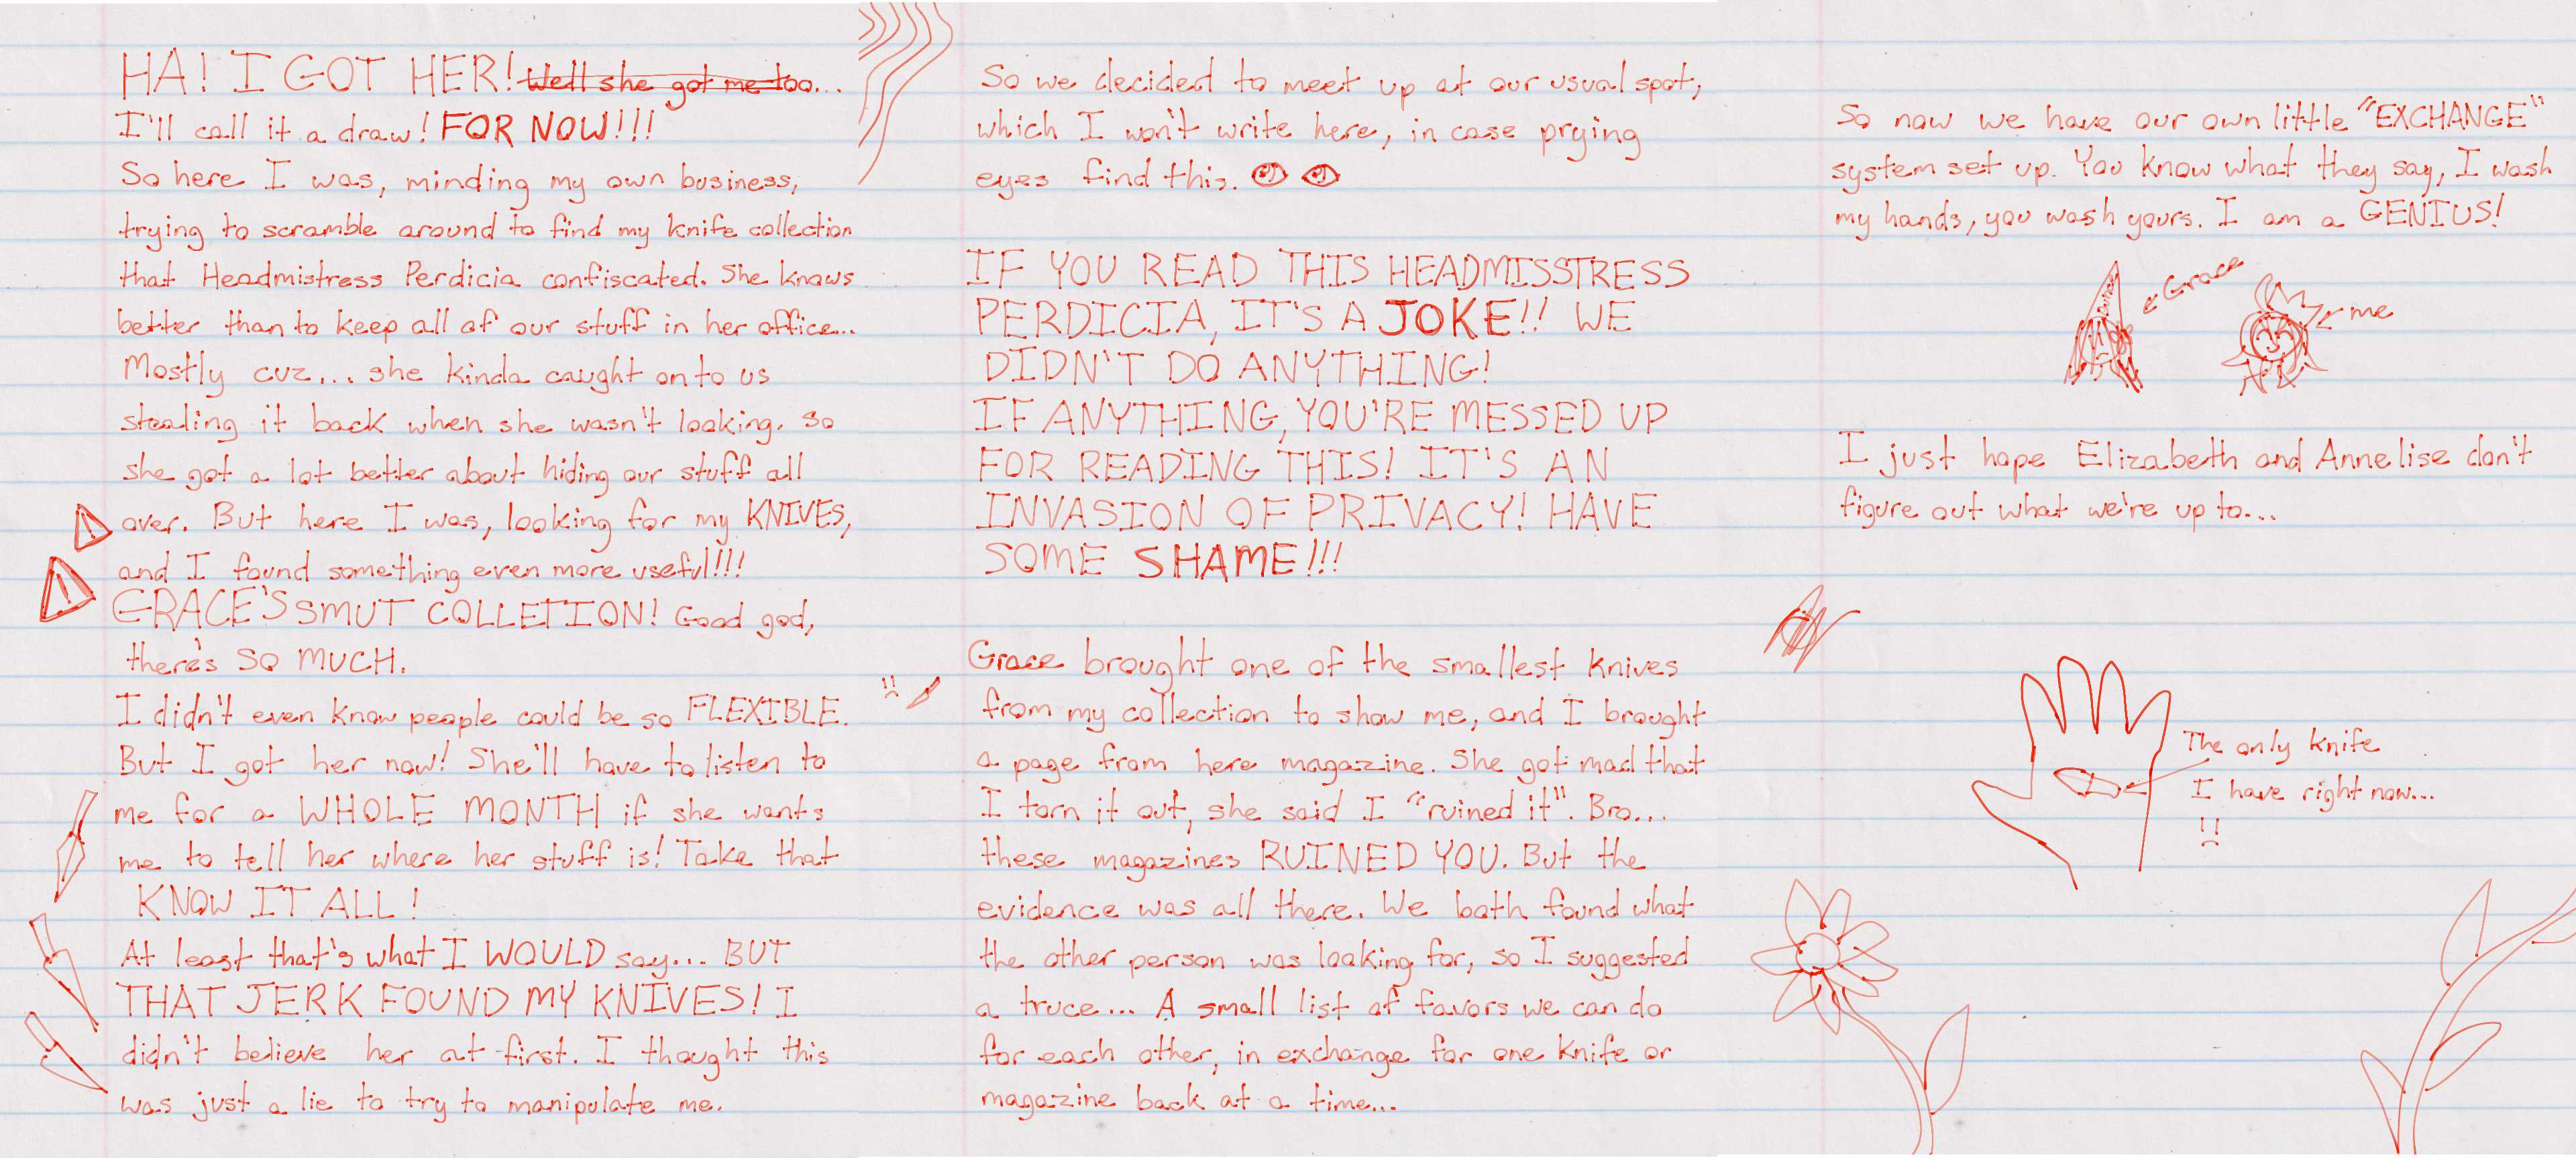 HA! I GOT HER! Well she got me too...
I'll call it a draw! FOR NOW!!!
So here I was, minding my own business,
trying to scramble around to find my knife collection
that Headmistress Perdicia confiscated. She knows
better than to keep all of our stuff in her office...
Mostly cuz... she kinda caught onto us
stealing it back when she wasn't looking. So
she got a lot better about hiding our stuff all
over. But here I was, looking for my KNIVES,
and I found something even more useful!!!
GRACE'S SMUT COLLETION! Good god,
there's SO MUCH.
I didn't even know people could be so FLEXIBLE.
But I got her now! She'll have to listen to
me for a WHOLE MONTH if she wants
me to tell her where her stuff is! Take that
KNOW IT ALL!
At least that's what I WOULD say... BUT
THAT JERK FOUND MY KNIVES! I
didn't believe her at first. I thought this
was just a lie to try to manipulate me.
So we decided to meet up at our usual spot,
which I won't write here, in case prying
eyes find this.
IF YOU READ THIS HEADMISSTRESS
PERDICIA, IT'S A JOKE!! WE
DIDN'T DO ANYTHING!
IF ANYTHING, YOU'RE MESSED UP
FOR READING THIS! IT'S AN
INVASION OF PRIVACY! HAVE
SOME SHAME!!!
Grace brought one of the smallest knives
from my collection to show me, and I brought
a page from here magazine. She got mad that
I torn it out, she said I "ruined it". Bro...
these magazines RUINED YOU. But the
evidence was all there. We both found what
the other person was looking for, so I suggested
a truce... A small list of favors we can do
for each other, in exchange for one knife or
magazine back at a time...
So now we have our own little "EXCHANGE"
system set up. You know what they say, I wash
my hands, you wash yours. I am a GENIUS!
Grace
me
I just hope Elizabeth and Annelise don't
figure out what we're up to...
The only knife
I have right now...